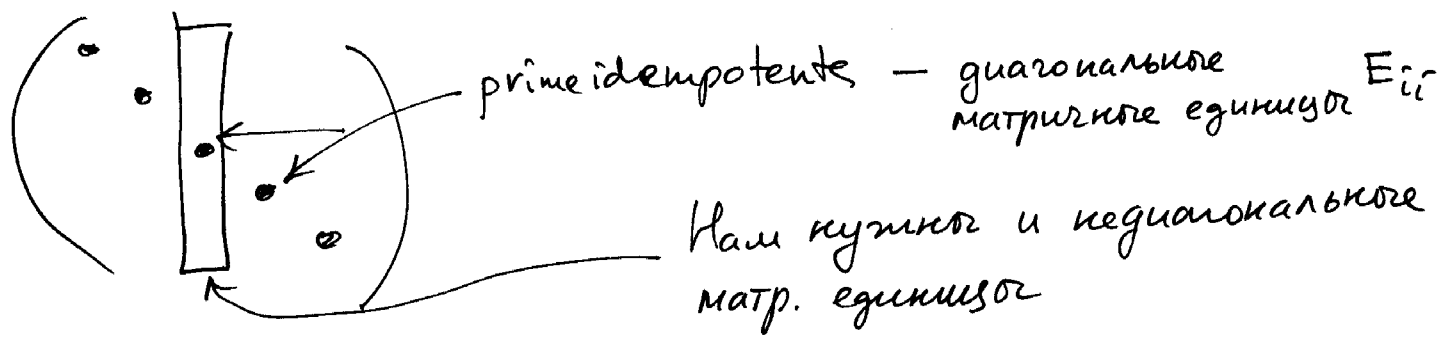 prime idempotents — диагональные
матричные единицы E_{ii}
Нам нужны и недиагональные
матр. единицы